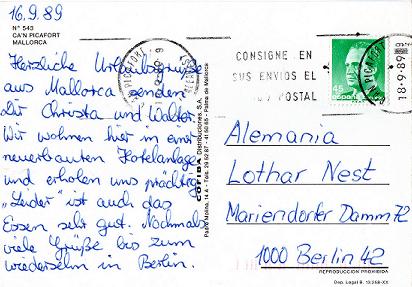 16.9.89
N° 543
CA'N PICAFORT
MALLORCA
Herzliche Urlaubsgrüsse
aus Mallorca senden
Dir Christa und Walter.
Wir wohnen hier in einer
neuerbauten Hotelanlage
und erholen uns prächtig.
"Leider" ist auch das
Essen sehr gut. Nochmals
viele Grüße bis zum
wiedersehn in Berlin.
COFIBA Distribuciones, S.A.
Palma de Mallorca
CONSIGNE EN
SUS ENVIOS EL
POSTAL
45
CA'N PICAFORT
18-9-89
Alemania
Lothar Nest
Mariendorfer Damm 72
1000 Berlin 42
REPRODUCCION PROHIBIDA
Dep. Legal B. 13.258-XX